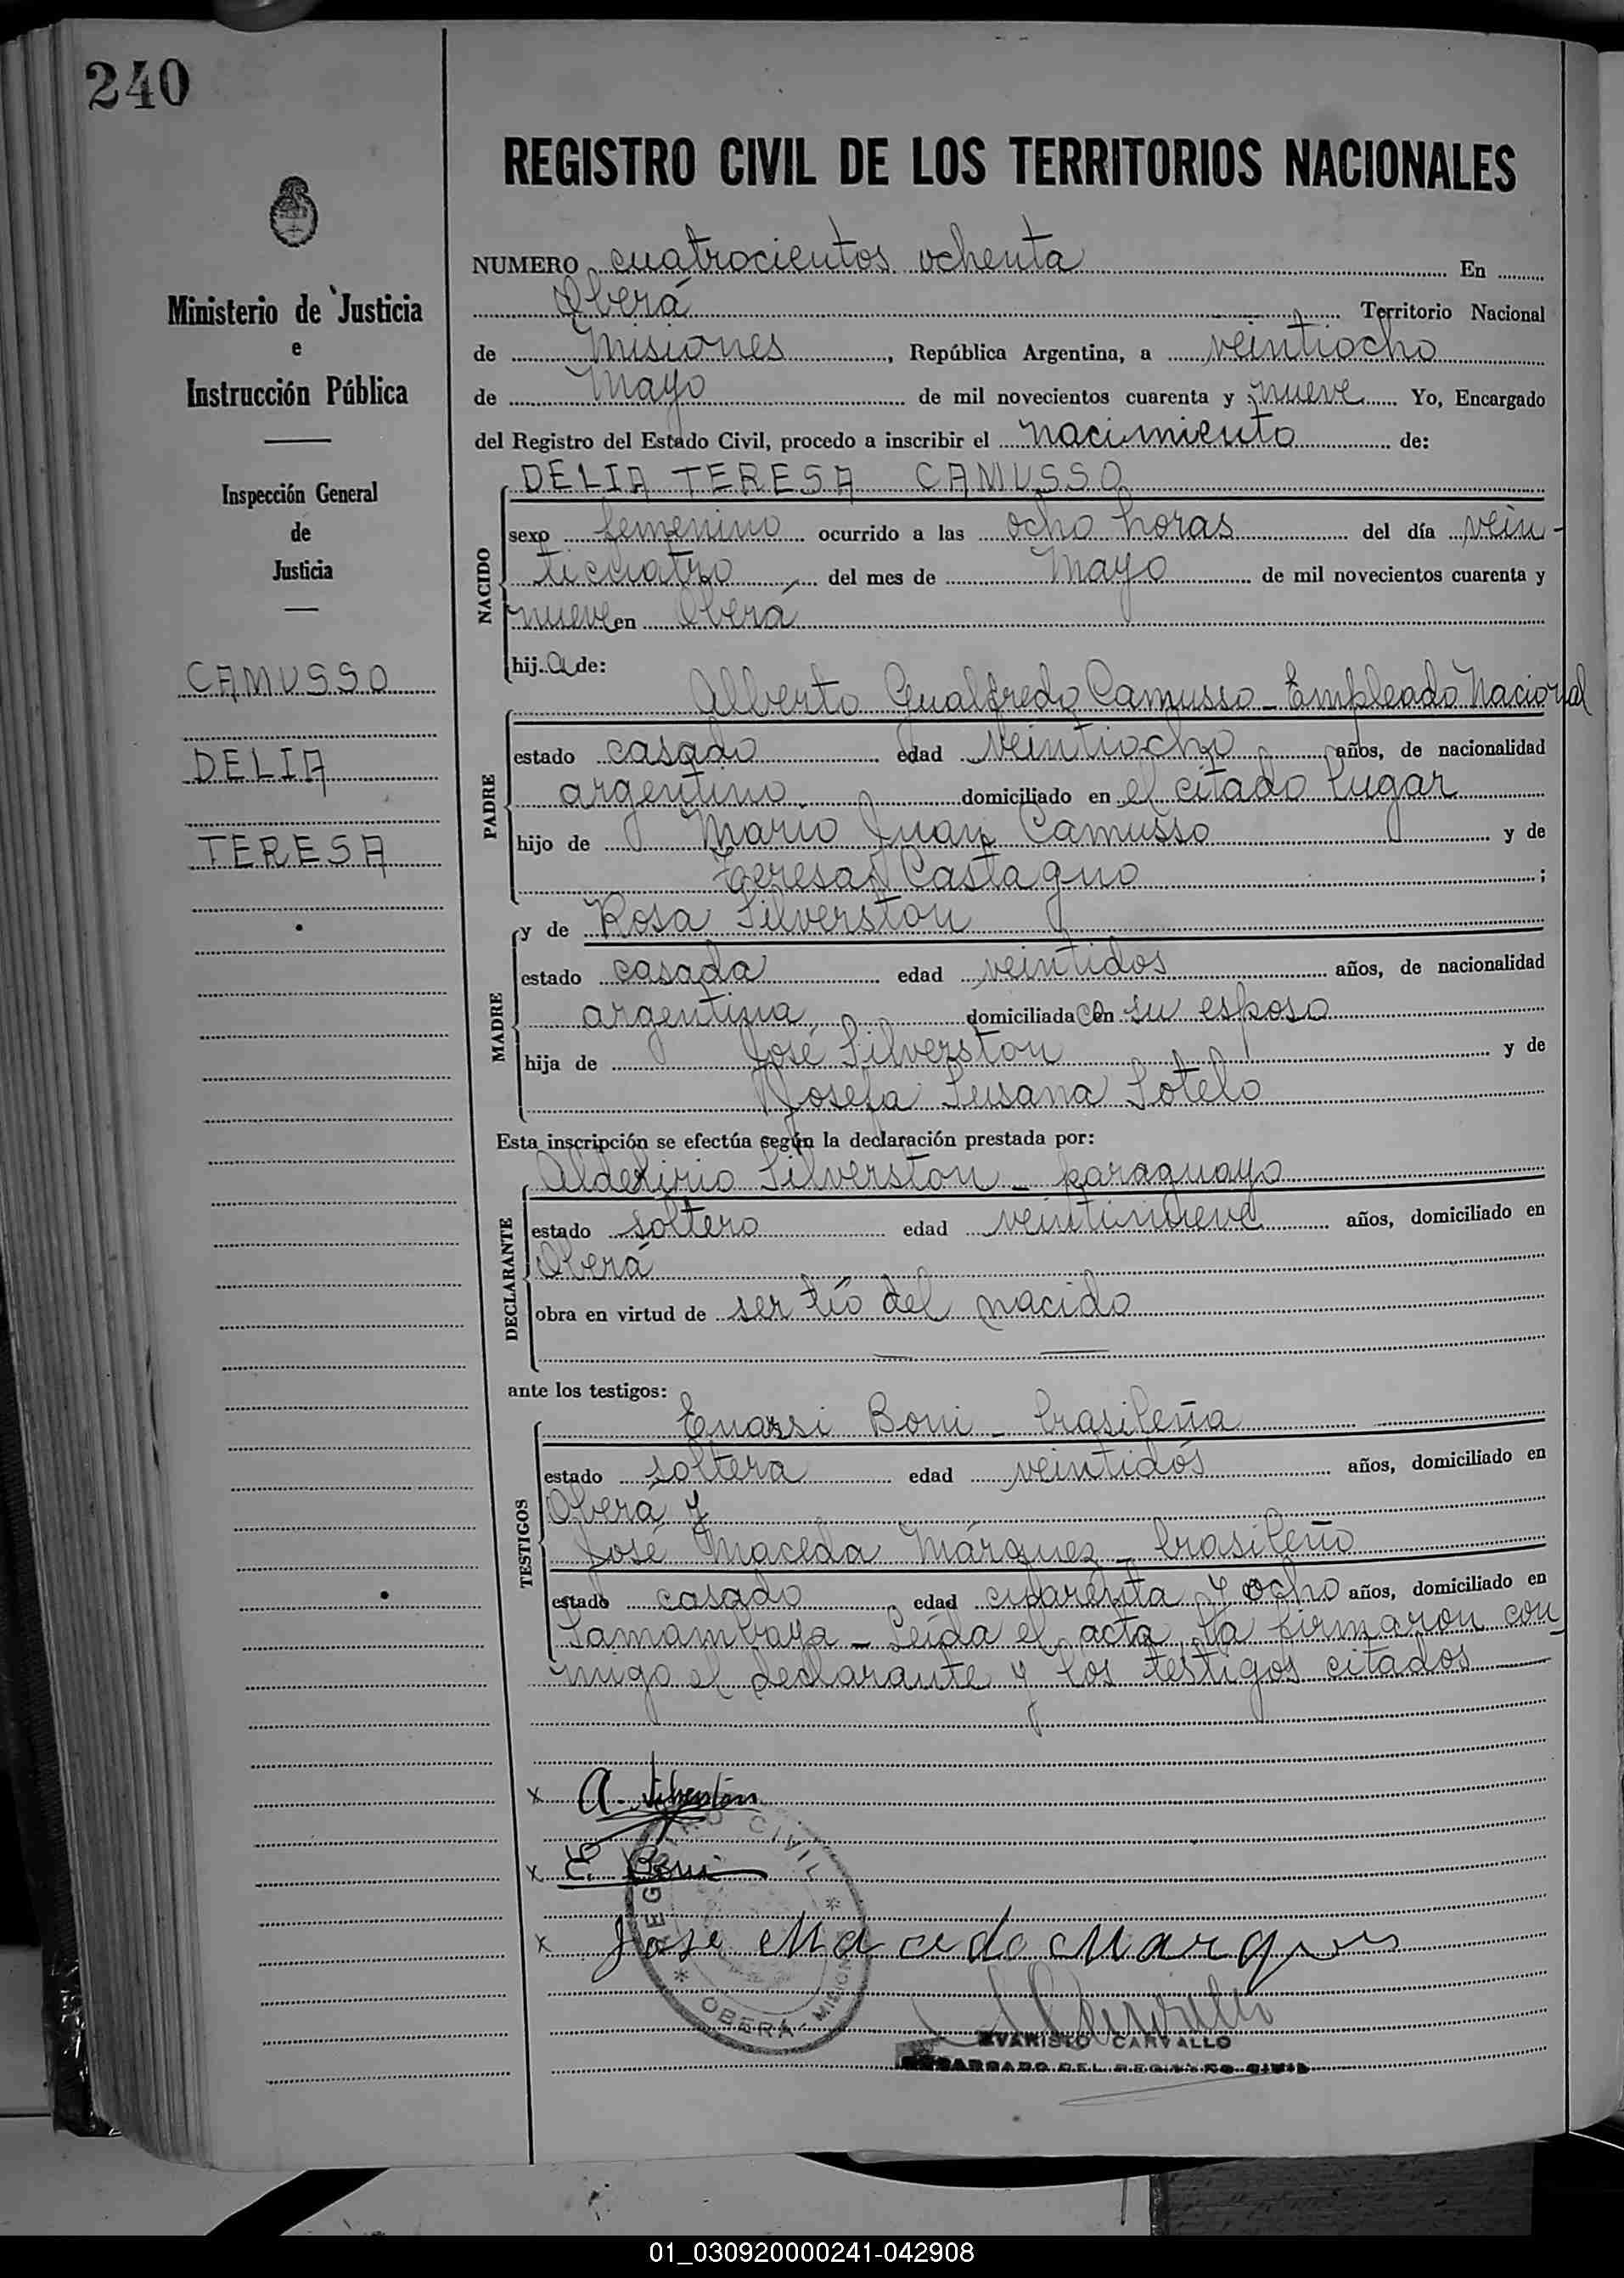 240
REGISTRO CIVIL DE LOS TERRITORIOS NACIONALES
Ministerio de Justicia
e
Instrucción Pública
Inspección General
de
Justicia
CAMUSSO
DELIA
TERESA
NUMERO cuatrocientos ochenta En
Oberá Territorio Nacional
de Misiones, República Argentina, a veintiocho
de Mayo de mil novecientos cuarenta y nueve Yo, Encargado
del Registro del Estado Civil, procedo a inscribir el nacimiento de:
NACIDO
DELIA TERESA CAMUSSO
sexo femenino ocurrido a las ocho horas del día vein-
ticuatro del mes de Mayo de mil novecientos cuarenta y
nueve en Oberá
hija de:
PADRE
Alberto Gualfredo Camusso - Empleado Nacional
estado casado edad veintiocho años, de nacionalidad
argentino domiciliado en el citado lugar
hijo de Mario Juan Camusso y de
Teresa Castagno ;
MADRE
y de Rosa Silverston
estado casada edad veintidos años, de nacionalidad
argentina domiciliada con su esposo
hija de José Silverston y de
Josefa Susana Sotelo
Esta inscripción se efectúa según la declaración prestada por:
DECLARANTE
Silverston - paraguayo
estado soltero edad veintinueve años, domiciliado en
Oberá
obra en virtud de ser tío del nacido
ante los testigos:
TESTIGOS
Enarsi Boni - brasileña
estado soltera edad veintidós años, domiciliado en
Oberá y
José Maceda Márquez - brasileño
estado casado edad cuarenta y ocho años, domiciliado en
Samambaya - Leída el acta, la firmaron con-
migo el declarante y los testigos citados
x A. Silverston
x E. Boni
x Jose Macedo Marques
REGISTRO CIVIL
* OBERÁ - MISIONES *
EVARISTO CARVALLO
ENCARGADO DEL REGISTRO CIVIL
01_030920000241-042908